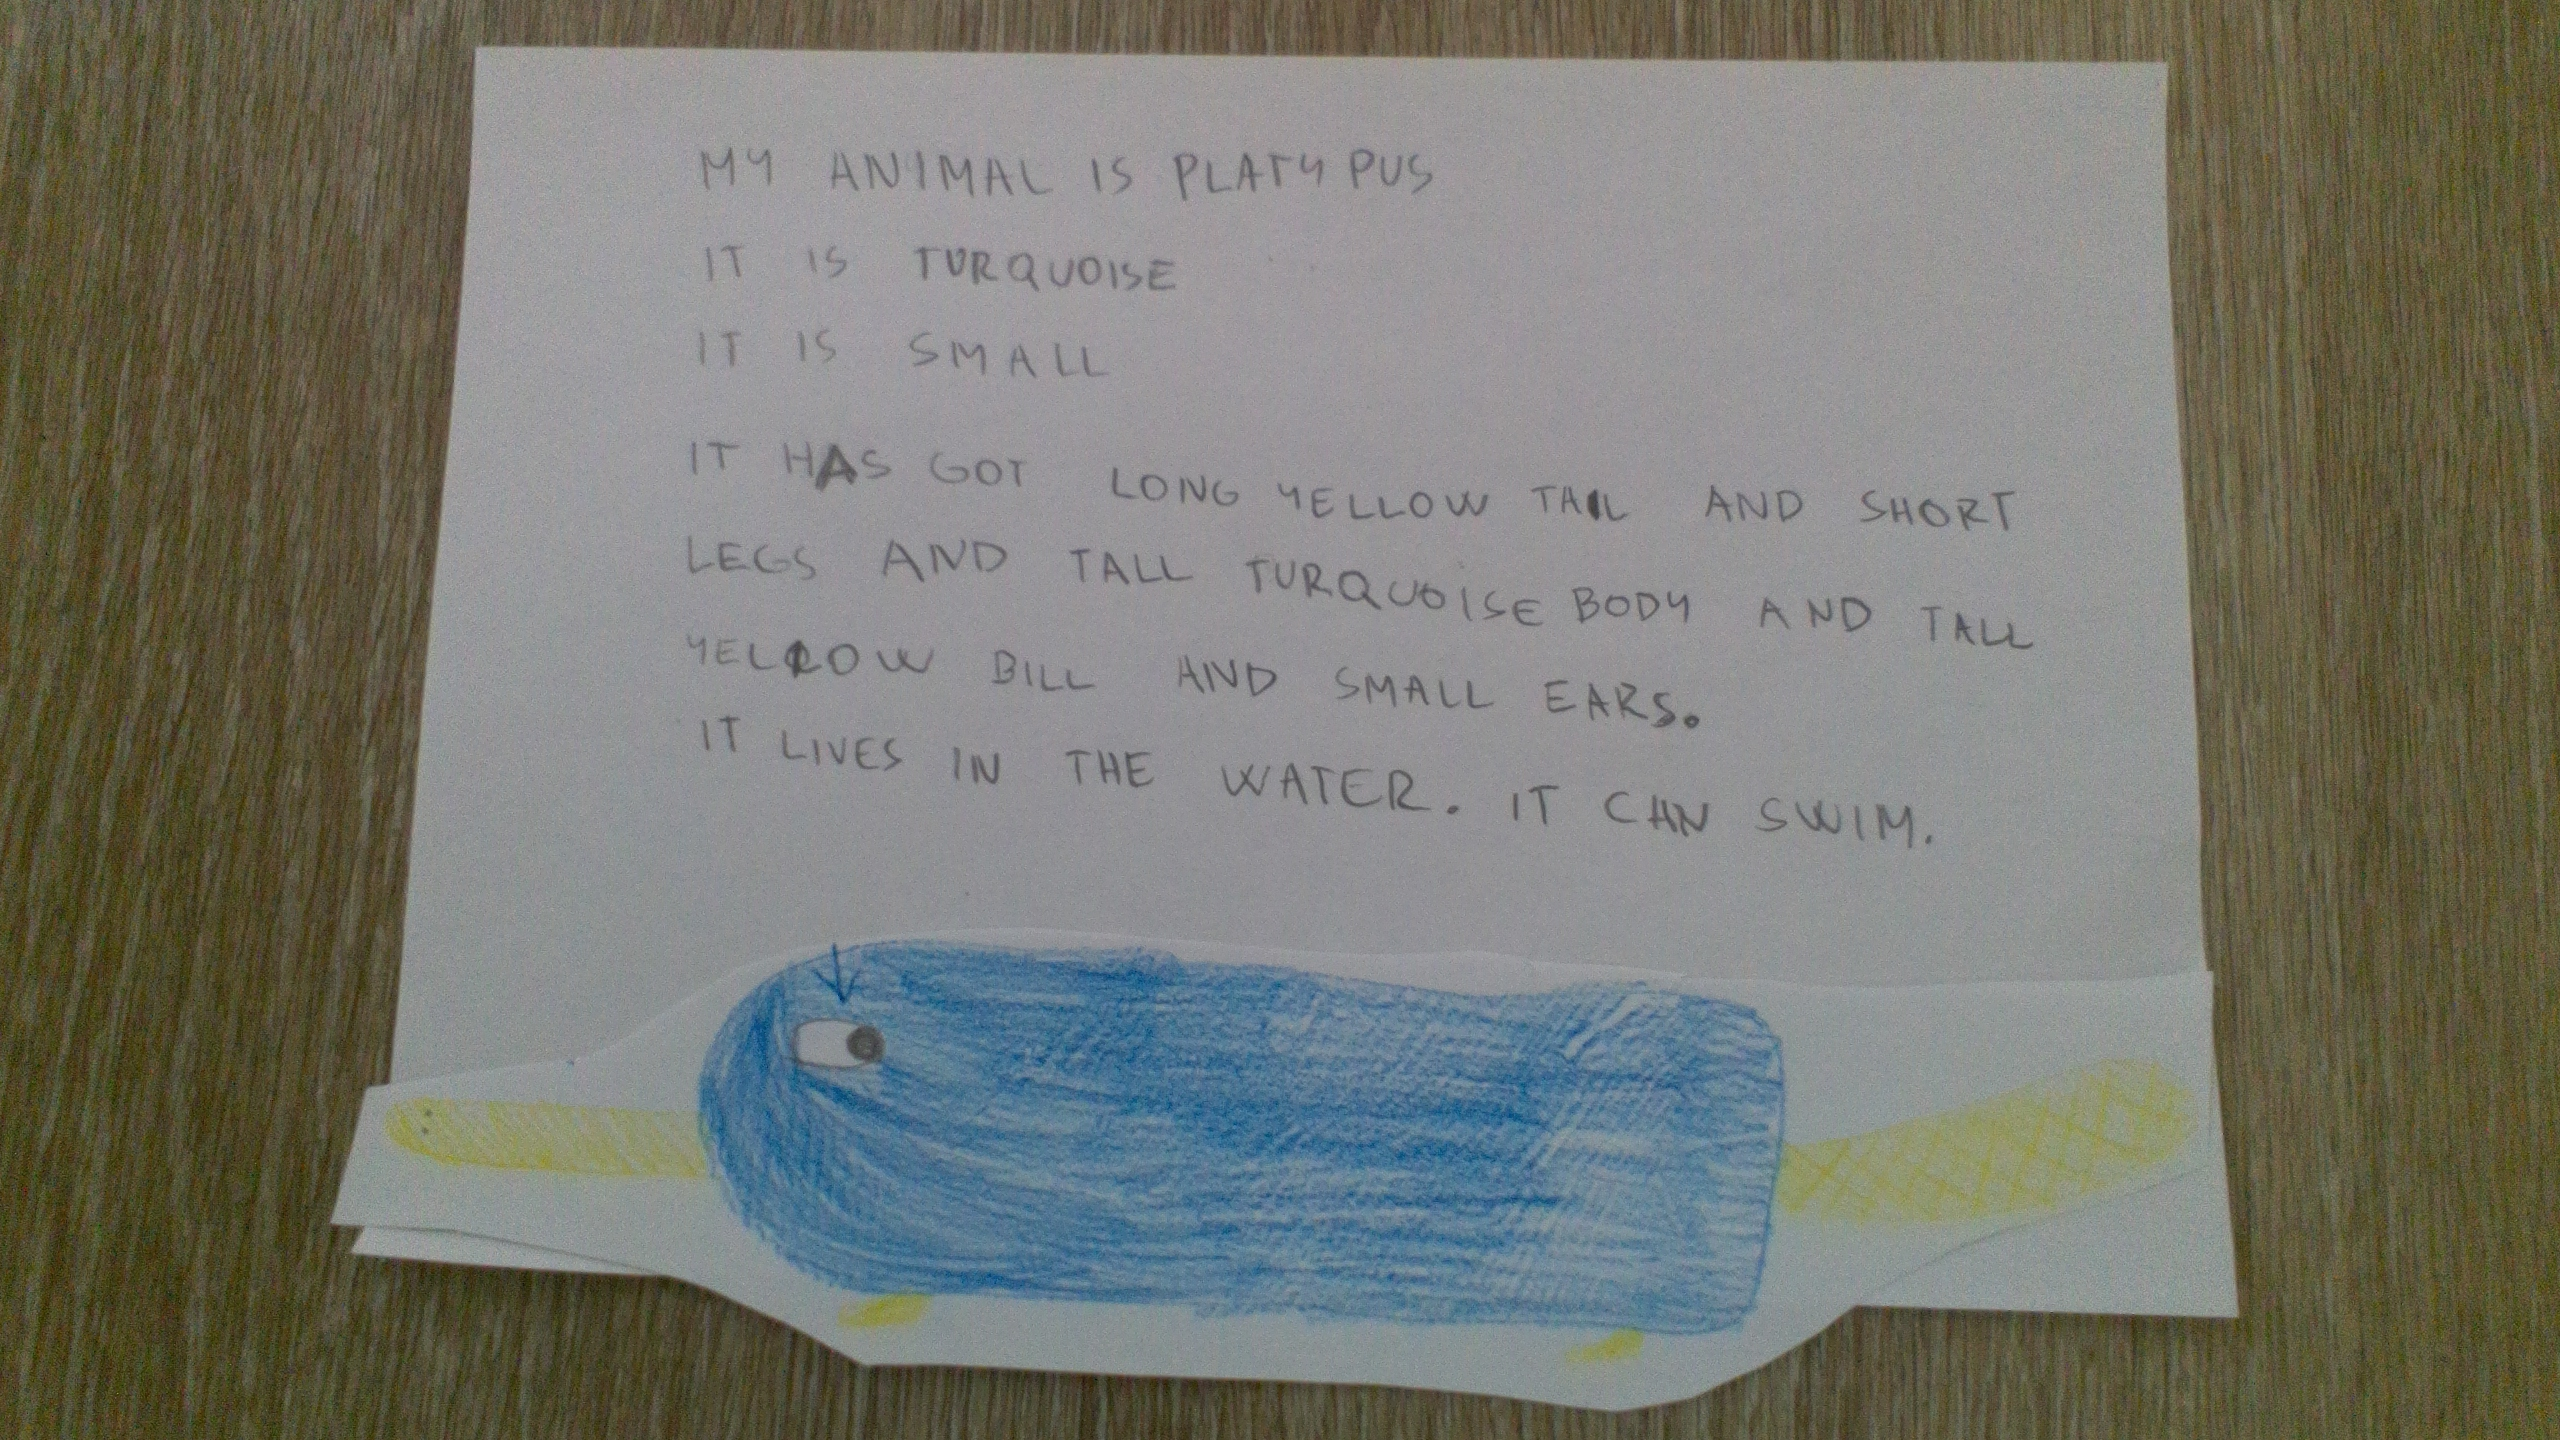 MY ANIMAL IS PLATYPUS
IT IS TURQUOISE
IT IS SMALL
IT HAS GOT LONG YELLOW TAIL AND SHORT
LEGS AND TALL TURQUOISE BODY AND TALL
YELLOW BILL AND SMALL EARS.
IT LIVES IN THE WATER. IT CAN SWIM.